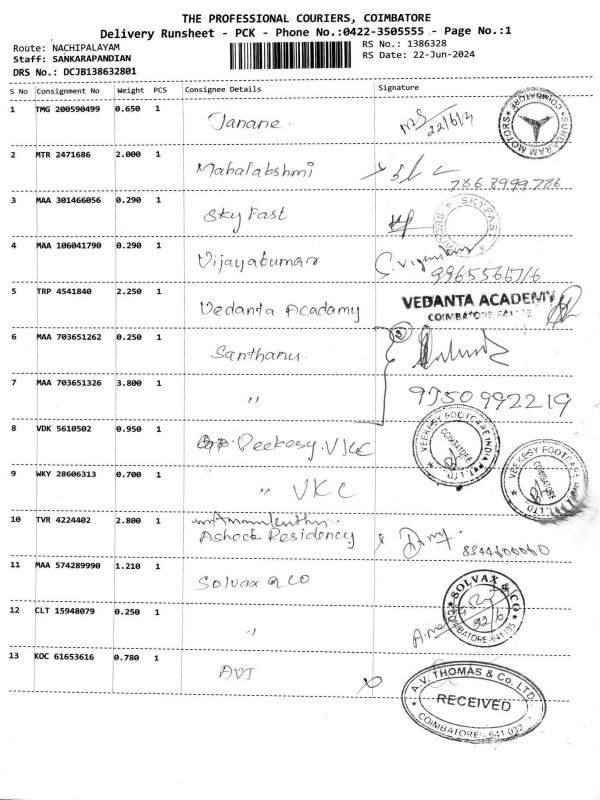 THE PROFESSIONAL COURIERS, COIMBATORE
Delivery Runsheet - PCK - Phone No.:0422-3505555 - Page No.:1
Route: NACHIPALAYAM
Staff: SANKARAPANDIAN
DRS No.: DCJB138632801
RS No.: 1386328
RS Date: 22-Jun-2024
S No Consignment No Weight PCS Consignee Details Signature
1 TMG 200590499 0.650 1 Janane. 22/6/24 SUNDARAM MOTORS COIMBATORE
2 MTR 2471686 2.000 1 Mahalabshmi
786 8999786
3 MAA 301466056 0.290 1 Sky Fast SKYFAST
4 MAA 106041790 0.290 1 Vijayakumar
5 TRP 4541840 2.250 1 Vedanta Acadamy VEDANTA ACADEMY
COIMBATORE 641105
6 MAA 703651262 0.250 1 Santhanu. 2
7 MAA 703651326 3.800 1 " 9750992219
8 VDK 5610502 0.950 1 Peekesy. VKC VEEKESY FOOTCARE INDIA PVT. LTD COIMBATORE
9 WKY 28606313 0.700 1 " VKC VEEKESY FOOTCARE LTD COIMBATORE
10 TVR 4224402 2.800 1
Ashock Residency
11 MAA 574289990 1.210 1 Solvax & CO SOLVAX & CO COIMBATORE-641105 22/6
12 CLT 15948079 0.250 1 "
13 KOC 61653616 0.780 1 AVT A.V. THOMAS & Co. LTD.
RECEIVED
COIMBATORE - 641 032